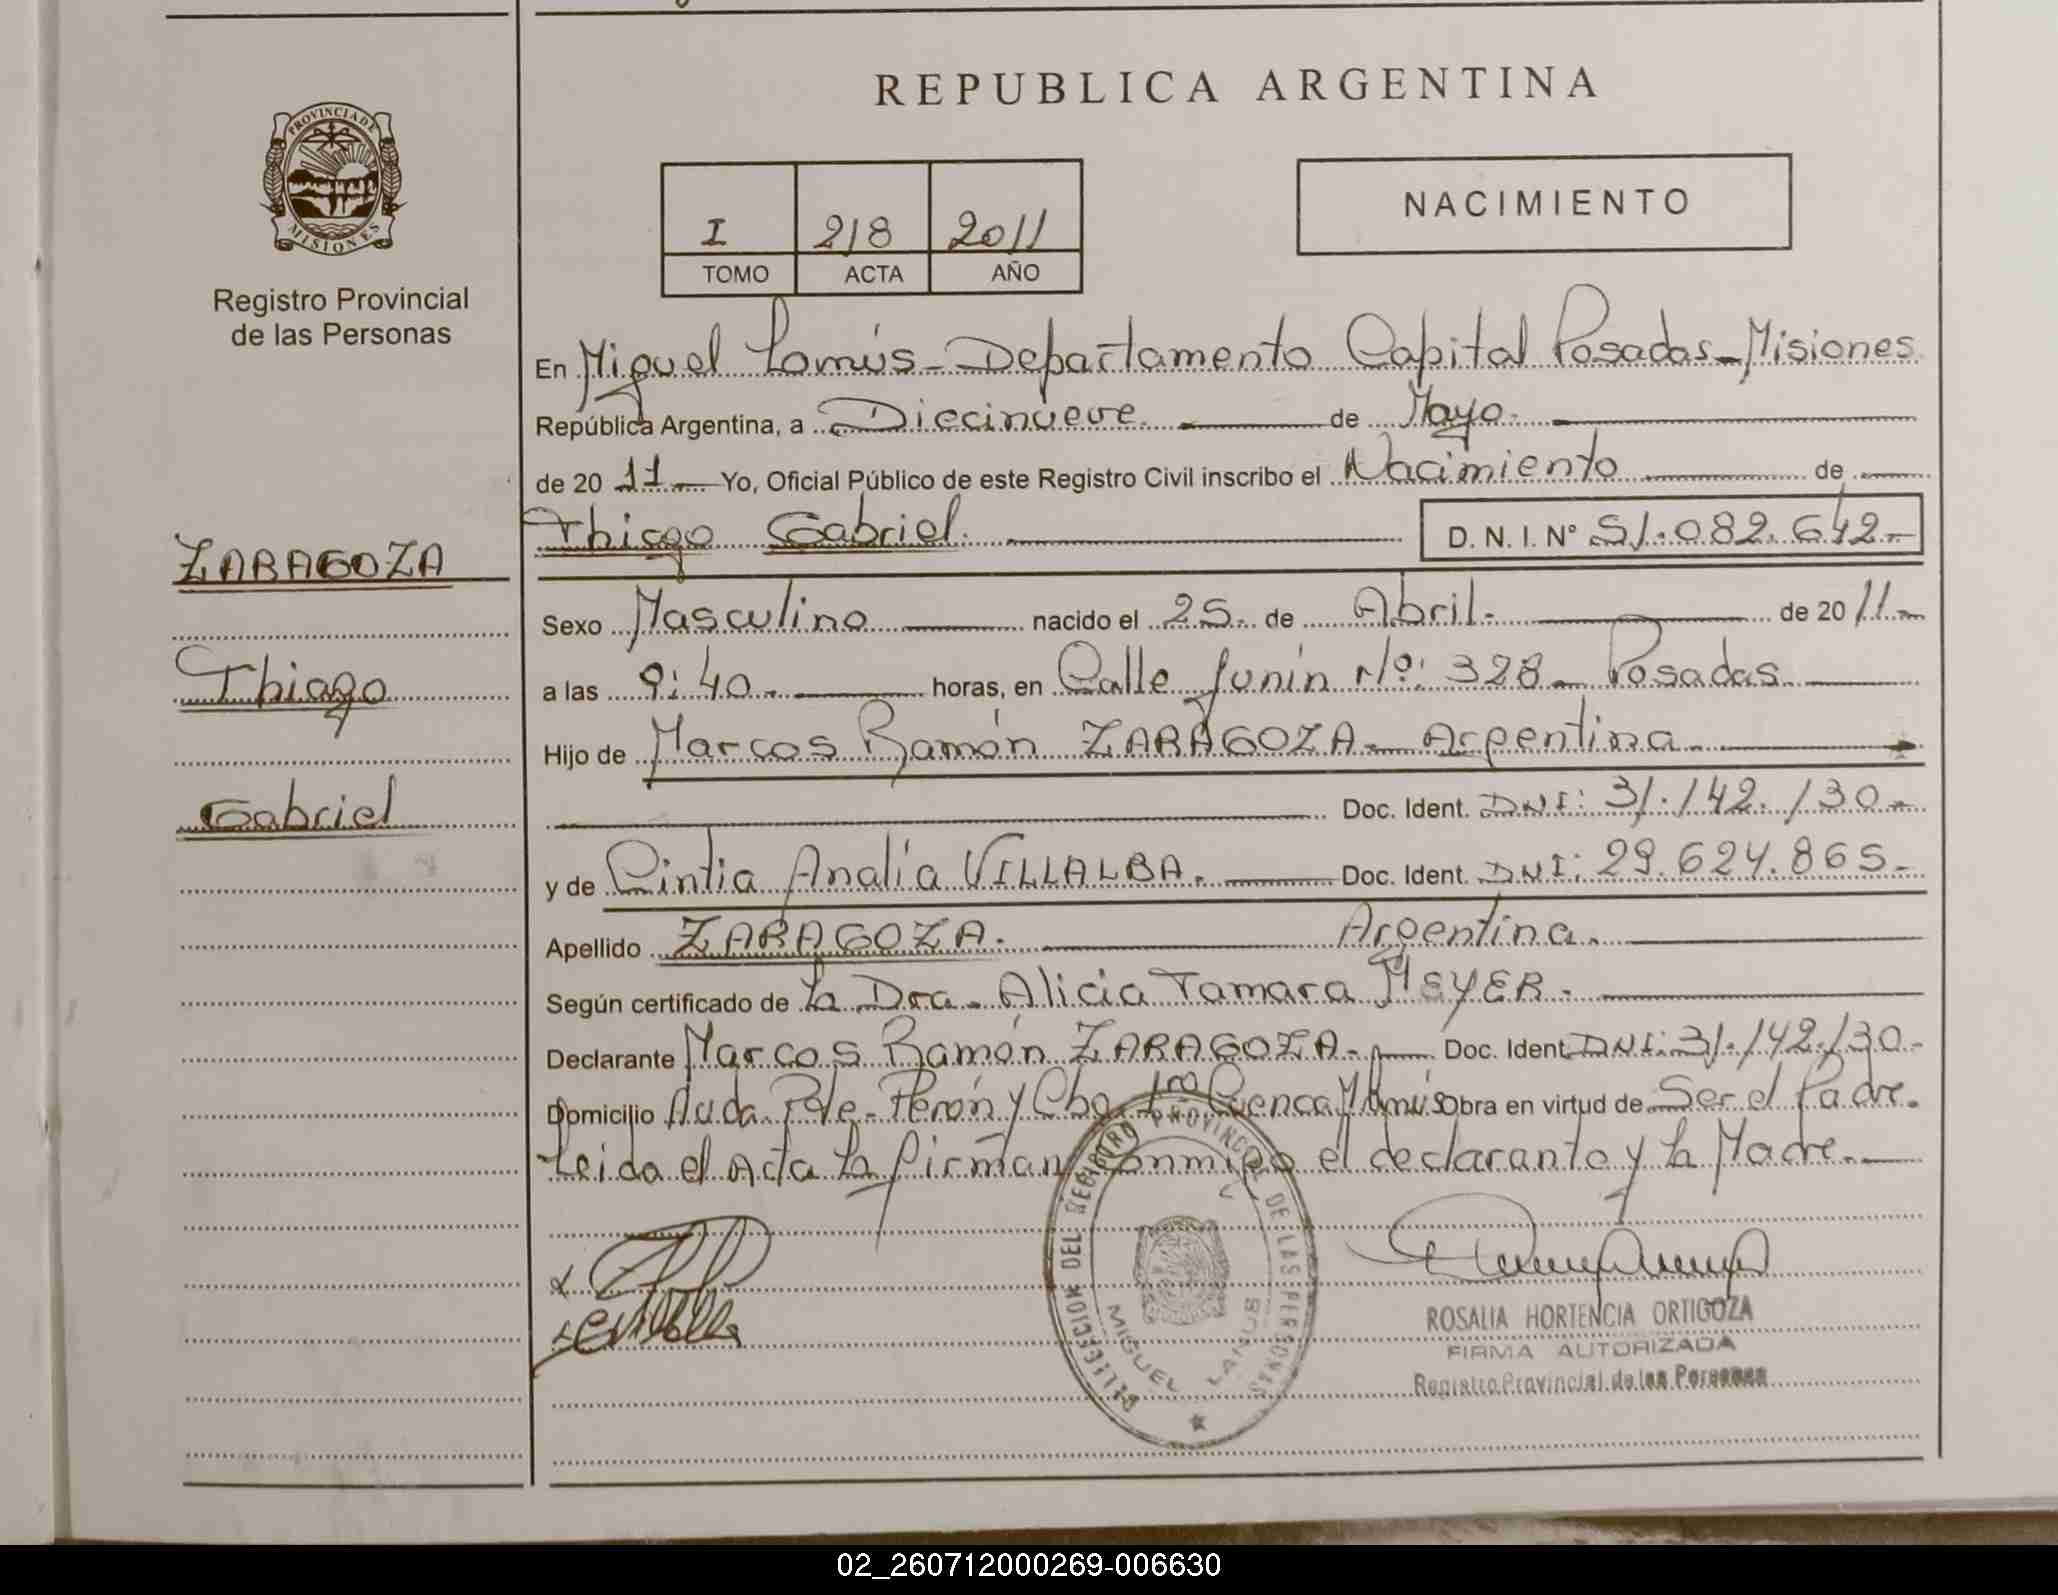 REPUBLICA ARGENTINA
PROVINCIA DE
MISIONES
Registro Provincial
de las Personas
I 218 2011
TOMO ACTA AÑO
NACIMIENTO
En Miguel Lanús - Departamento Capital Posadas - Misiones
República Argentina, a Diecinueve de Mayo.
de 20 11 Yo, Oficial Público de este Registro Civil inscribo el Nacimiento de
Thiago Gabriel. D. N. I. N° 51.082.642-
ZARAGOZA
Thiago
Gabriel
Sexo Masculino nacido el 25 de Abril. de 20 11.-
a las 9:40. horas, en Calle Junín Nº: 328 - Posadas
Hijo de Marcos Ramón ZARAGOZA - Argentina
Doc. Ident. DNI: 31.142.130-
y de Cintia Analía VILLALBA. Doc. Ident. DNI: 29.624.865-
Apellido ZARAGOZA. Argentina.
Según certificado de la Dra. Alicia Tamara MEYER.
Declarante Marcos Ramón ZARAGOZA. Doc. Ident. DNI: 31.142.130-
Domicilio Avda. Pte. Perón y Cbo. 1ro Cuenca M. Obra en virtud de Ser el Padre.
Leida el Acta la firman conmigo el declarante y la Madre.
DELEGACION DEL REGISTRO PROVINCIAL DE LAS PERSONAS
MIGUEL LANUS
ROSALIA HORTENCIA ORTIGOZA
FIRMA AUTORIZADA
Registro Provincial de las Personas
02_260712000269-006630